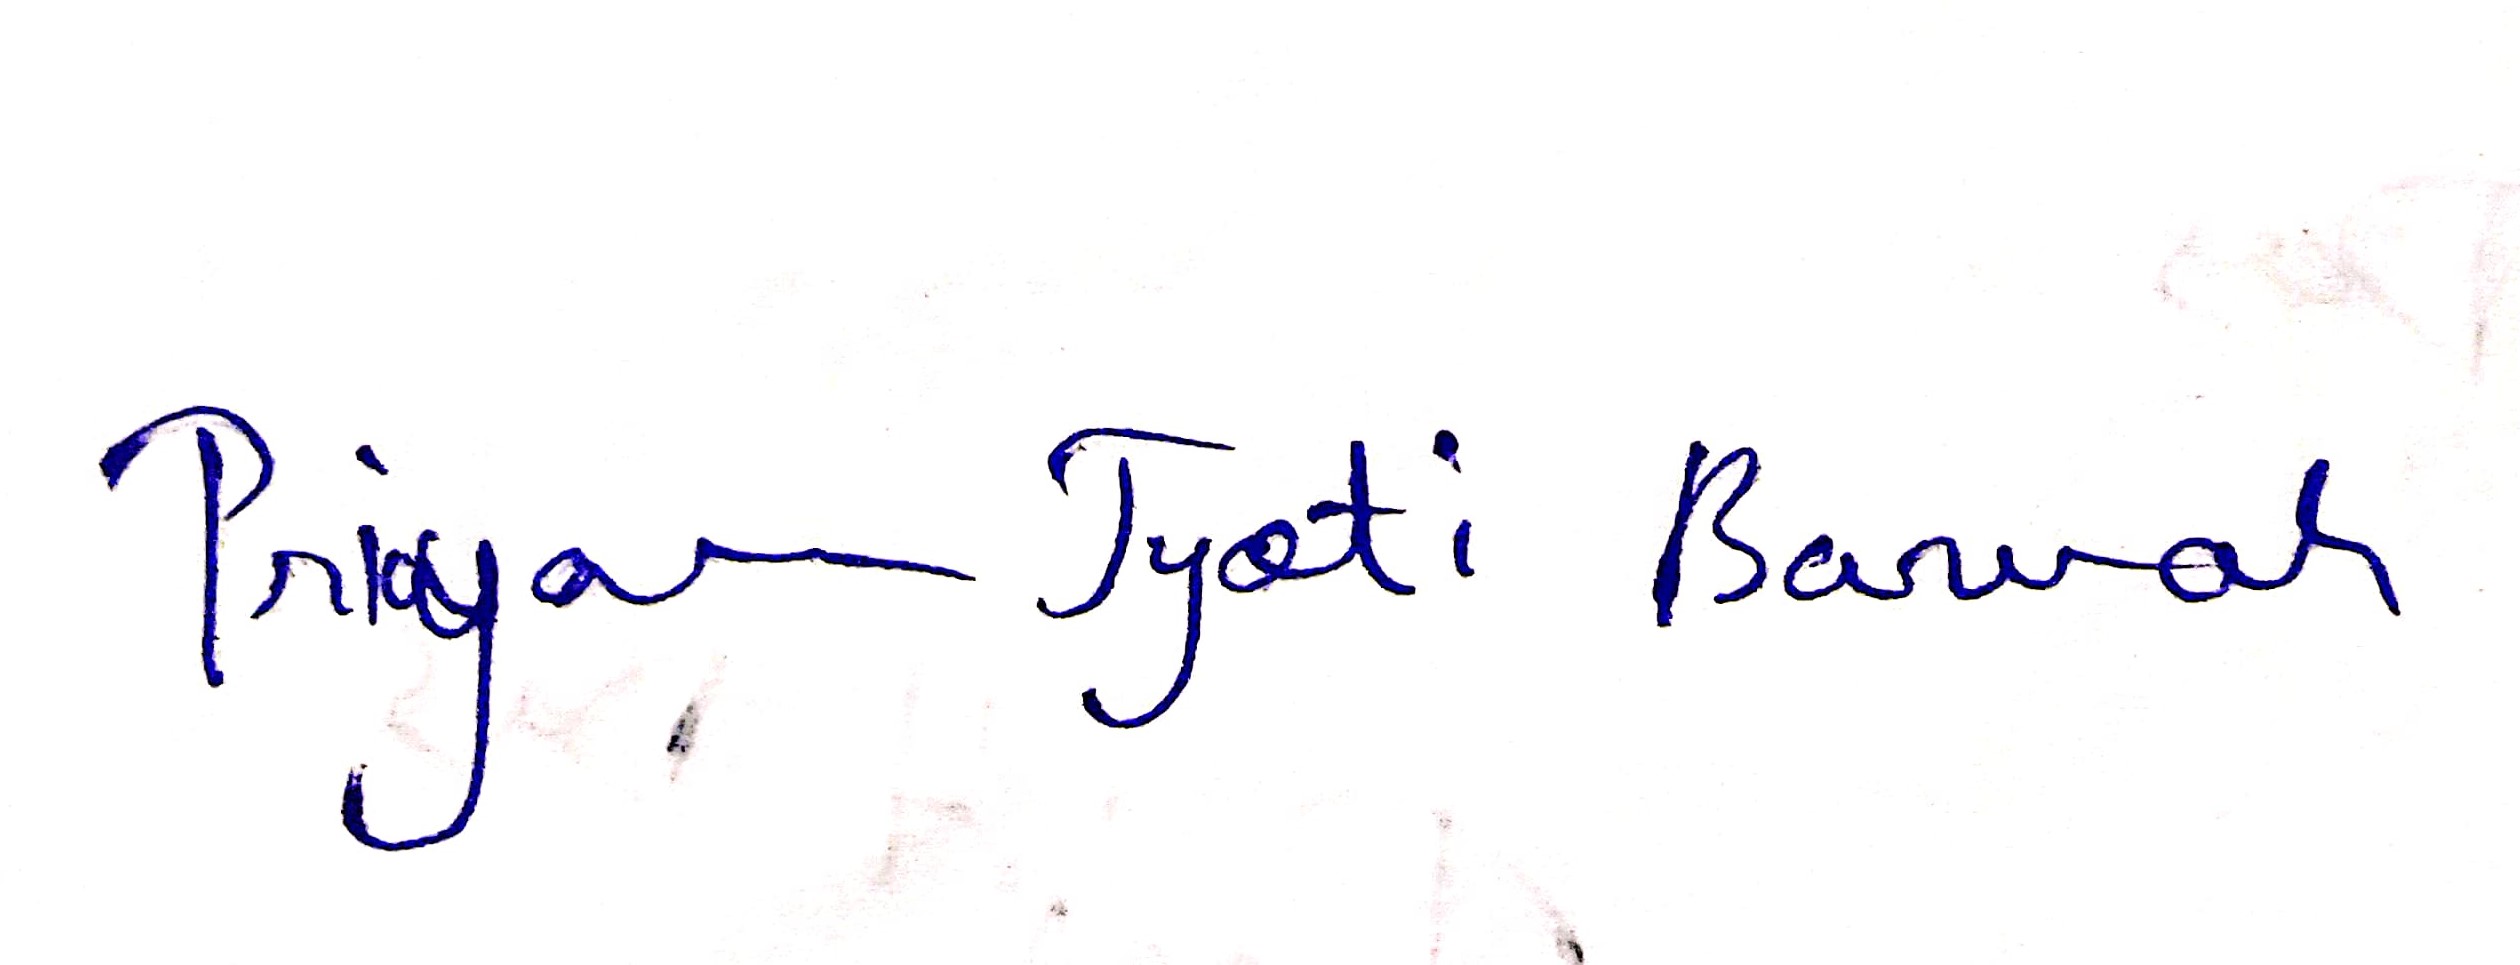 Priya Jyoti Baruah